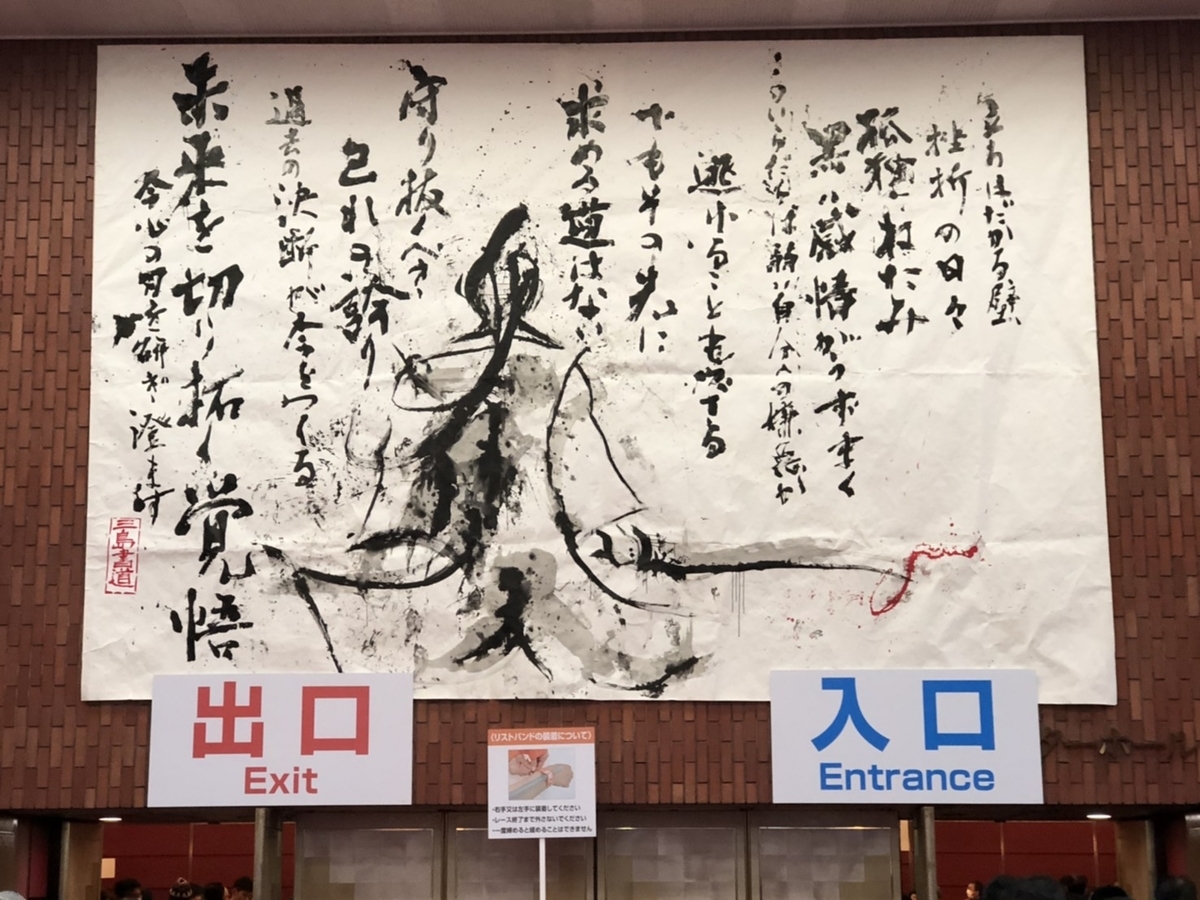 立ちはだかる壁
挫折の日々
孤独 ねたみ
黒い感情がうずまく
逃げることも出来る
でもその先に
求める道はない
守り抜くべき
己れの誇り
過去の決断が今をつくる
未来を切り拓く覚悟
今心の刃を研ぎ澄ませ
三島書道
出口
Exit
入口
Entrance
〈リストバンドの装着について〉
・右手又は左手に装着してください
・レース終了まで外さないでください
・一度締めると緩めることはできません